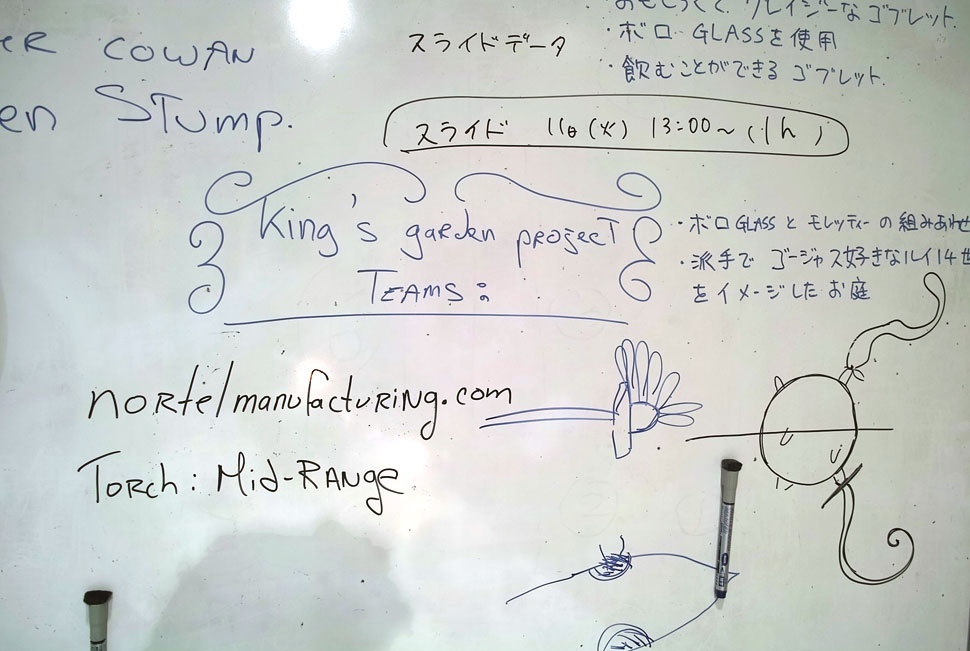 COWAN
Stump.
スライドデータ
クレイジーなゴブレット.
・ボロ GLASSを使用
・飲むことができるゴブレット.
スライド 11日(火) 13:00〜(1h)
King's garden project
TEAMS:
・ボロGLASSとモレッティーの組みあわせ
・派手でゴージャス好きなルイ14世
をイメージしたお庭
nortelmanufacturing.com
Torch: Mid-Range